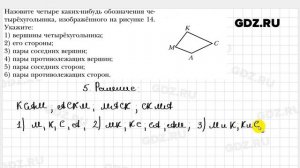 GDZ.RU
Назовите четыре каких-нибудь обозначения че-
тырёхугольника, изображённого на рисунке 14.
Укажите:
1) вершины четырёхугольника;
2) его стороны;
3) пары соседних вершин;
4) пары противолежащих вершин;
5) пары соседних сторон;
6) пары противолежащих сторон.
K
M
C
A
5. Решение
KCAM, ACKM, MACK, CKMA
1) M, K, C, A, 2) MK, KC, CA, AM, 3) M и K, K и C,
GDZ.RU